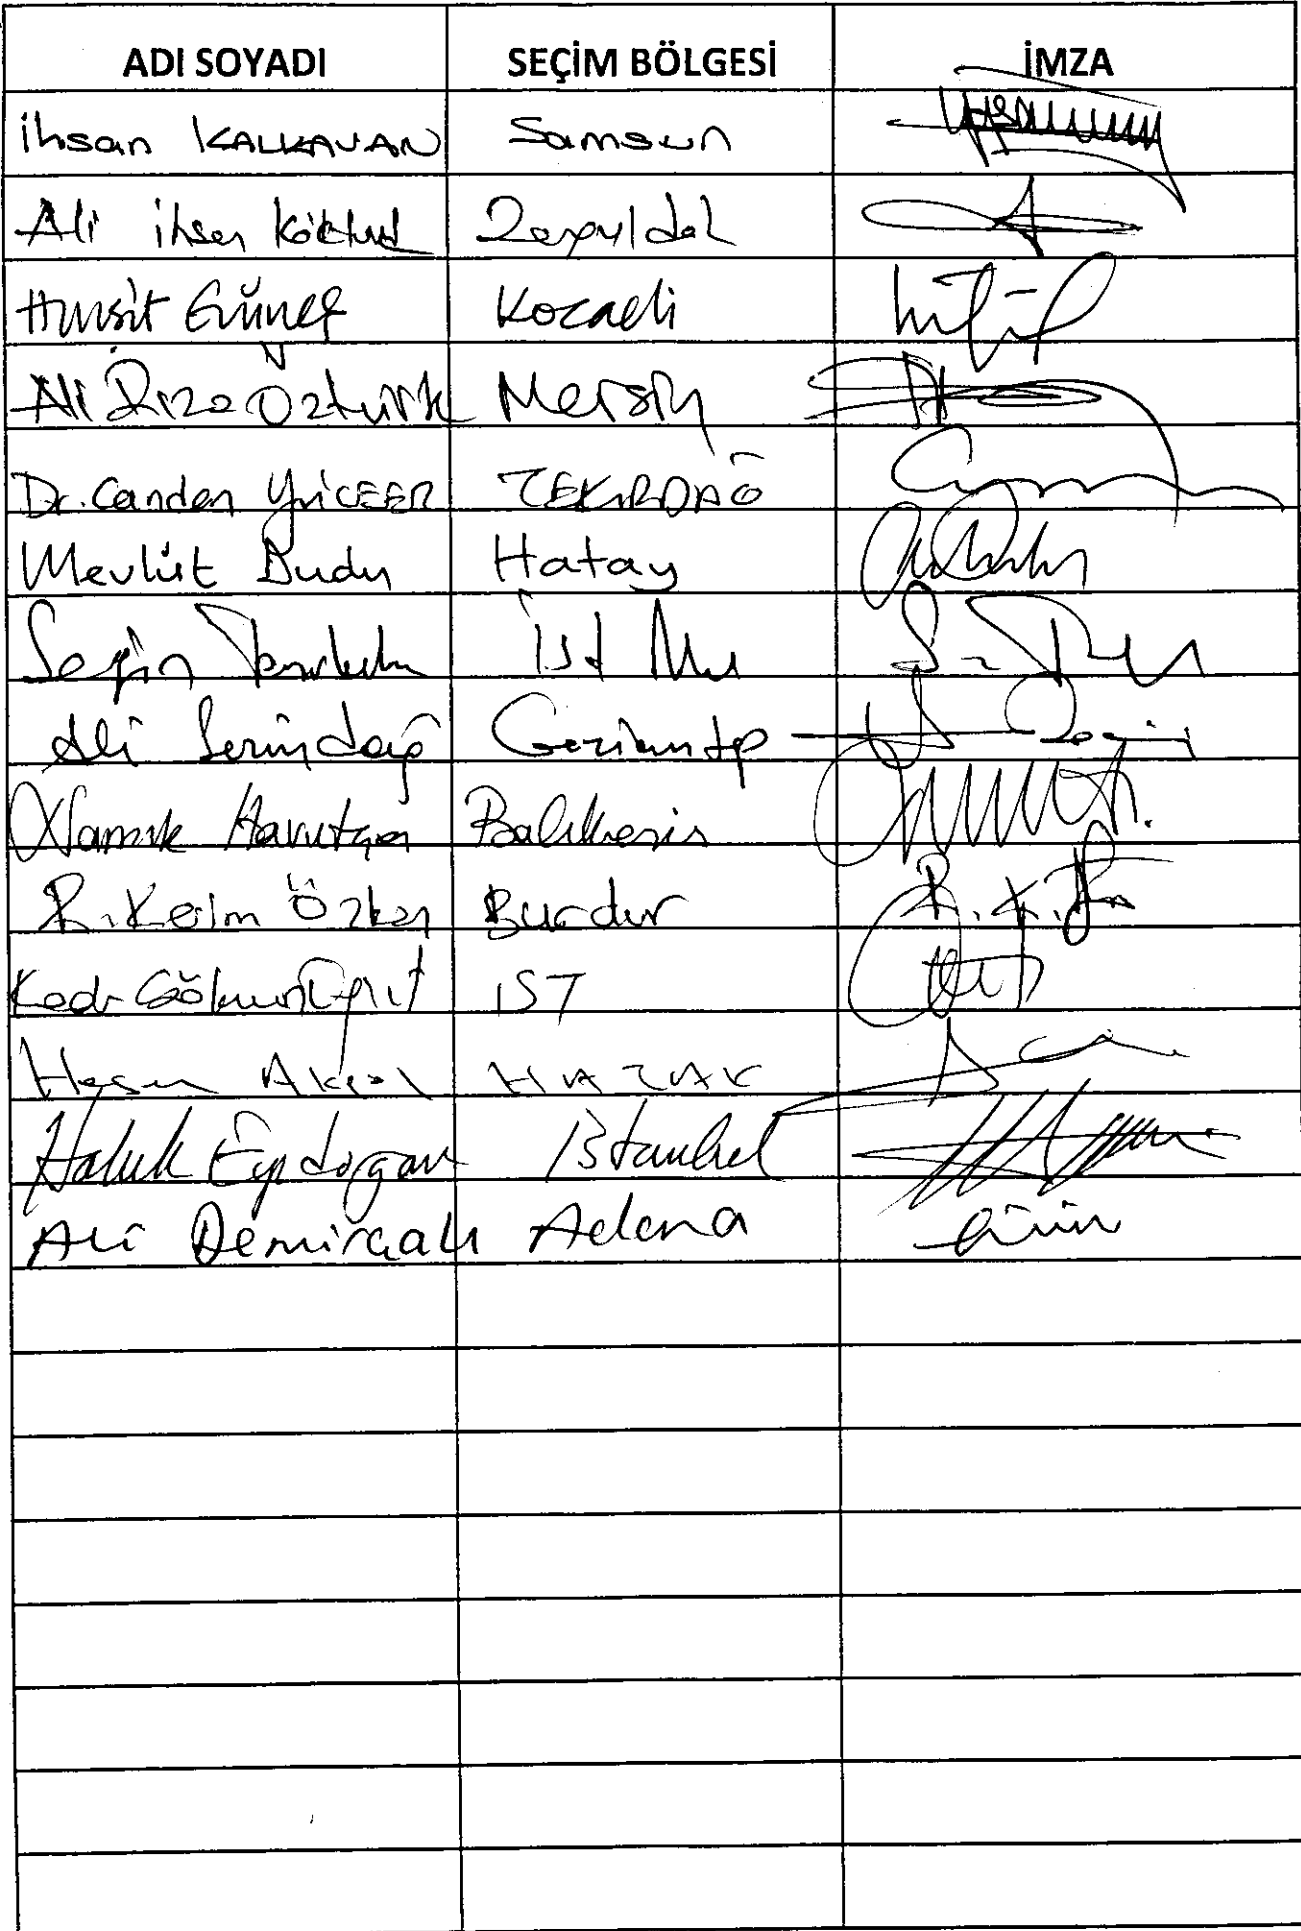 ADI SOYADI SEÇİM BÖLGESİ İMZA
İhsan KALKAVAN Samsun
Ali İhsan Köktürk Zonguldak
Hurşit Güneş Kocaeli
Ali Rıza Öztürk Mersin
Dr. Candan YÜCEER TEKİRDAĞ
Mevlüt Dudu Hatay
İst
Ali Serindağ Gaziantep
Namık Havutça Balıkesir
R. Kerim Özkan Burdur
Kadir Gökmen Öğüt IST
Hasan Akgöl HATAY
Haluk Eyidoğan İstanbul
Ali Demirçalı Adana